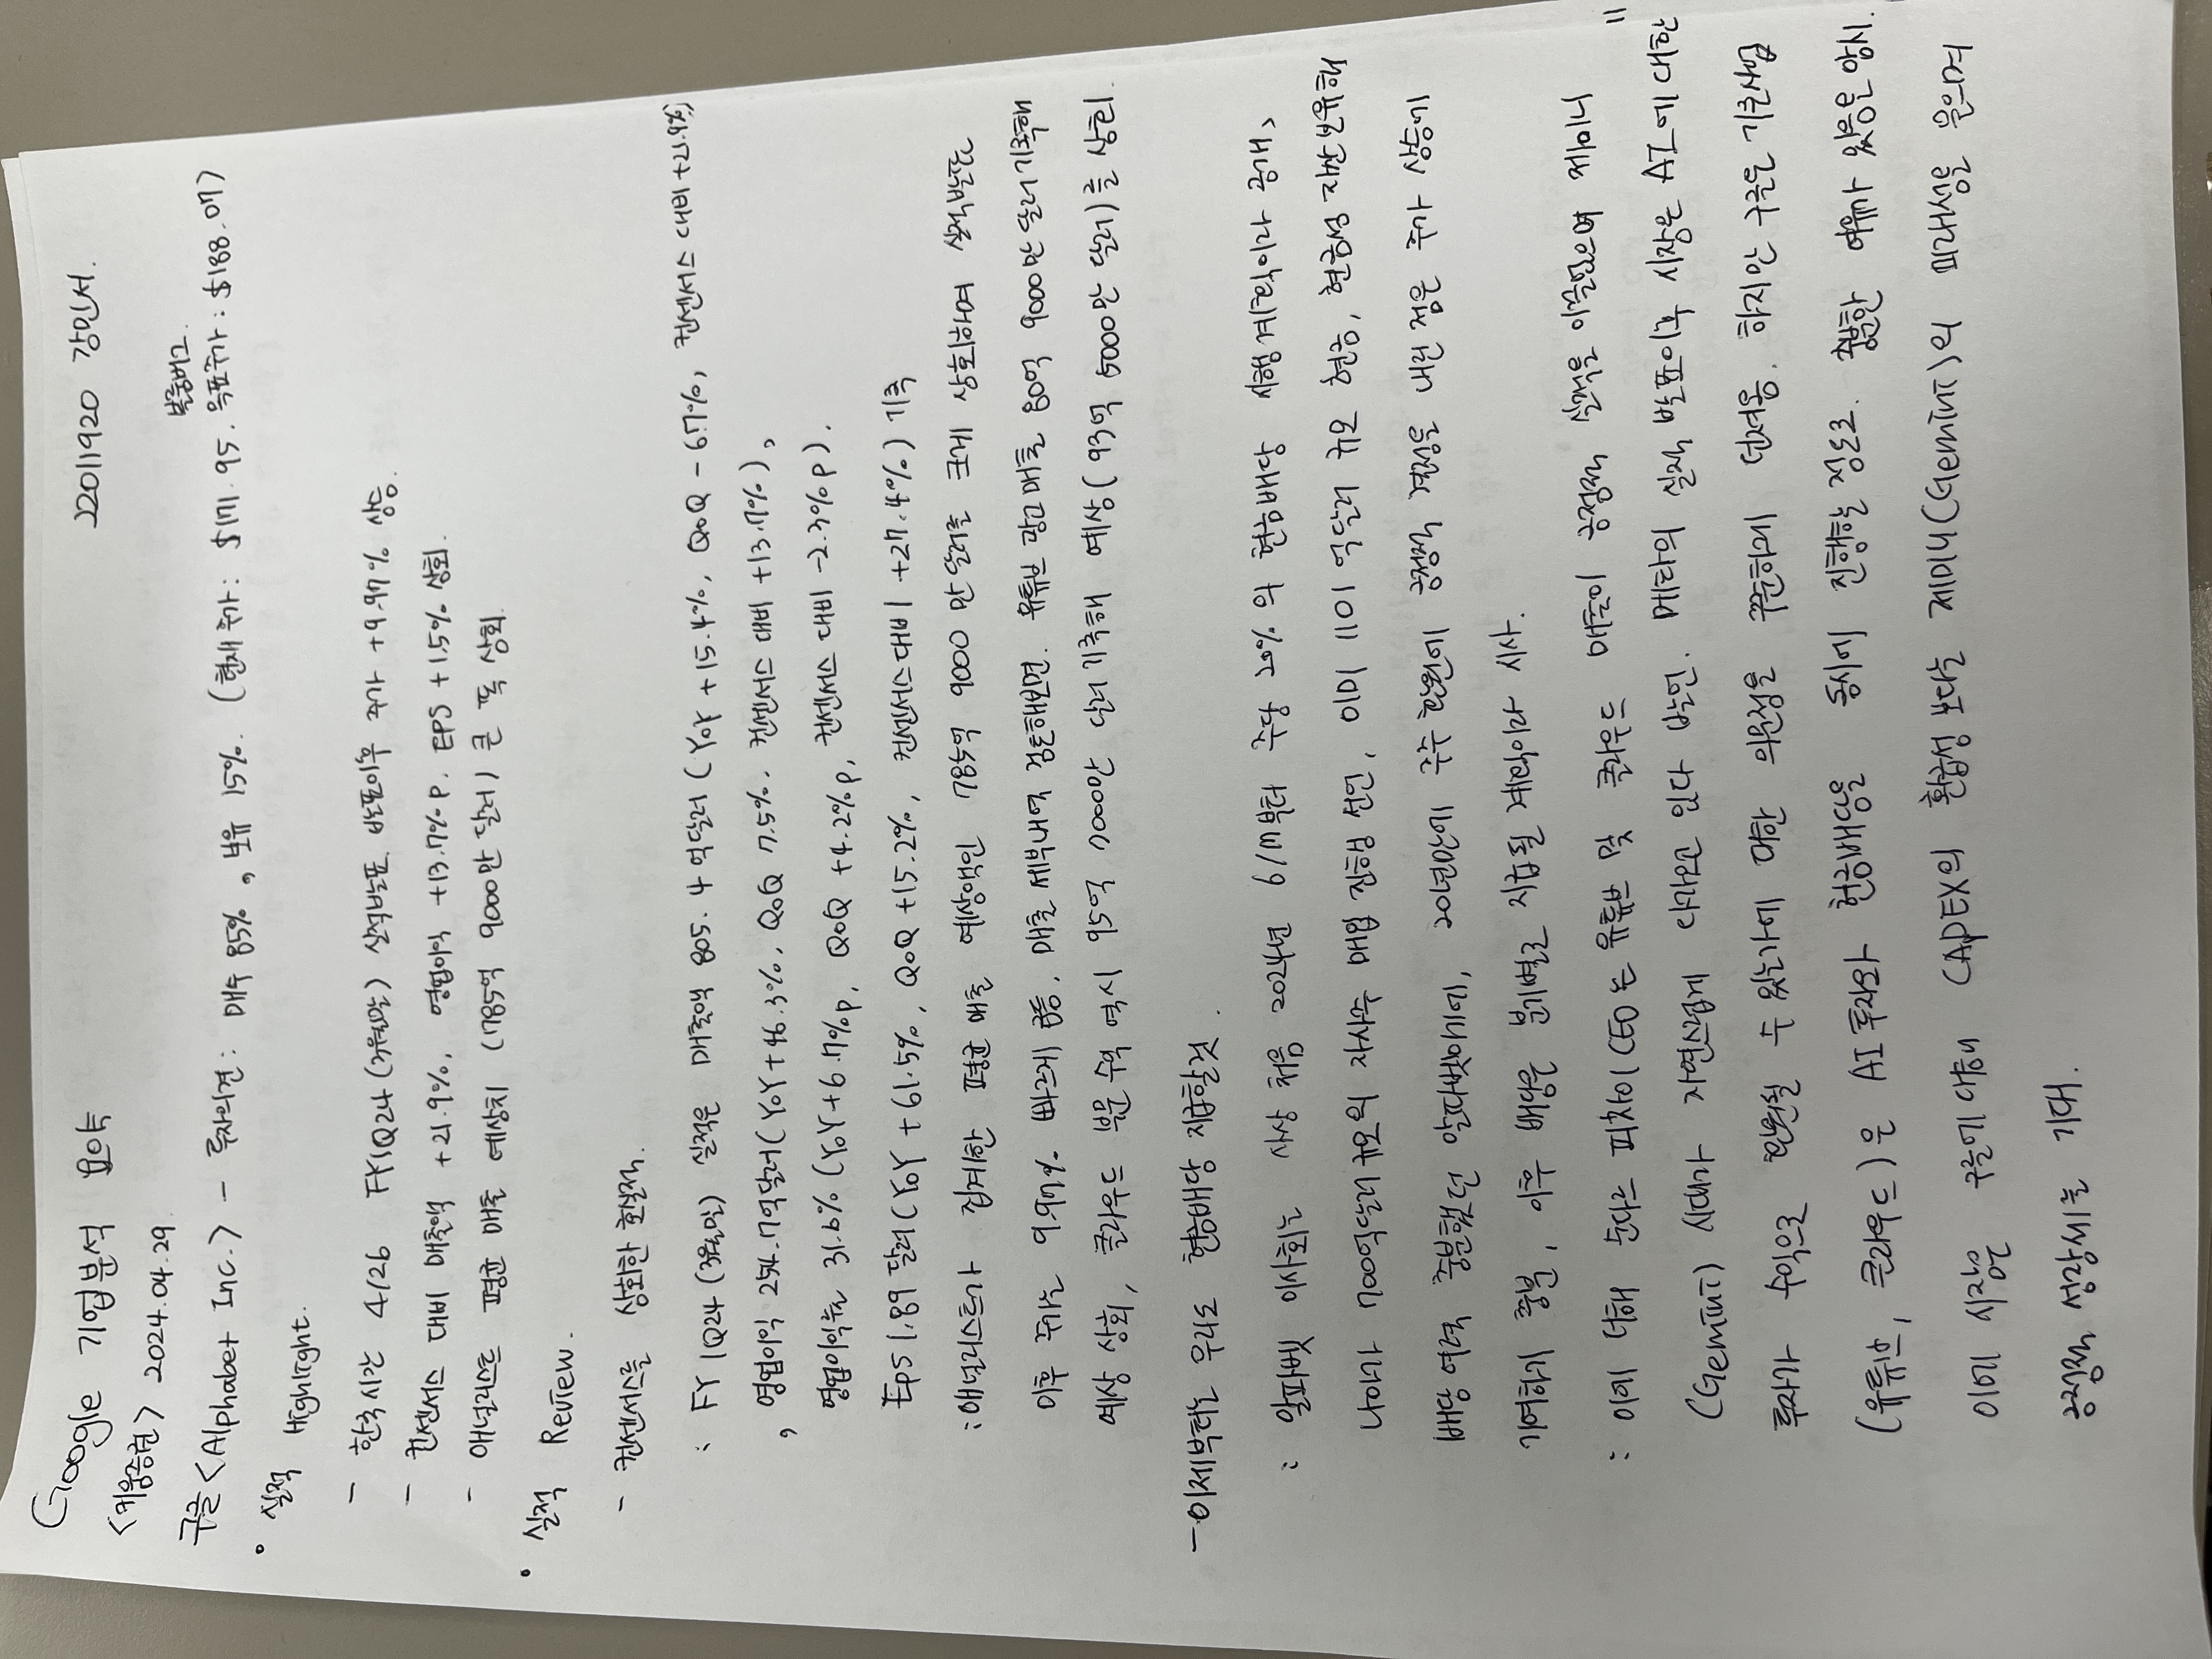 Google 기업분석 요약 22011920 강민서.
<키움증권> 2024.04.29. 블룸버그
구글<Alphabet Inc.> - 투자의견: 매수 85%, 보유 15%. (현재 주가: $171.95. 목표주가: $188.07)
• 실적 Highlight.
- 한국시간 4/26 FY1Q24(3월말) 실적발표. 발표이후 주가 +9.97% 상승.
- 컨센서스 대비 매출액 +21.9%, 영업이익 +13.7%p. EPS +1.5% 상회.
- 애널리스트 평균 매출 예상치 (785억 9000만 달러) 큰 폭 상회.
• 실적 Review.
- 컨센서스를 상회한 실적.
: FY 1Q24(3월말) 실적은 매출액 805.4억달러 (YoY +15.4%, QoQ -6.7%, 컨센서스 대비 +21.9%)
, 영업이익 254.7억달러 (YoY +46.3%, QoQ 7.5%. 컨센서스 대비 +13.7%),
영업이익률 31.6% (YoY +6.7%p, QoQ +4.2%p, 컨센서스 대비 -2.30%p).
EPS 1.89 달러 (YoY +61.5%, QoQ +15.2%, 컨센서스대비 +27.4%) 기록
: 애널리스트가 집계한 평균 매출 예상액인 785억 9000만 달러를 크게 상회하며 실적발표
이후 주가는 9.97% 빠르게 급등. 매출 세부내역 검토해보면. 유튜브 광고매출 80억 9000만 달러 기록해
예상 상회, 클라우드 부문 수익 역시 95억 7000만 달러 기록해 예상(93억 5000만 달러)를 상회.
- 이제부터는 우리도 현금배당 지급할것.
: 알파벳 이사회는 사상 처음 2024년 6/17부터 주당 20%의 현금배당 시행계획이라 공개,
나아가 700억달러규모의 자사주 매입 진행 선언, 이미 1101억달러 규모 현금, 현금성 자산 보유해
배당 여력 충분했던 알파벳이기에, 20년만에 주주 환원에 긍정적 결정을 내린 점은 주가 상승에
기여하기 충분, 이후 배당은 분기별로 지급될 계획이라 시사.
: 이에 더해 순다르 피차이 CEO는 유튜브 및 클라우드 매출이 긍정적 실적을 이끌었으며 제미니
(Gemini) 시대가 자연스럽게 다가오고 있다 발언. 메타의 실적 발표이후 시장은 AI에 대한
투자가 수익으로 연결될 수 있는가에 대한 의문점을 꾸준하게 던져옴. 하지만 구글은 기존사업
(유튜브, 클라우드)은 AI 투자와 현금배당을 동시에 진행할 정도로 충분한 여유가 있음을 암시.
이에 시장은 구글에 대해 CAPEX의 환급성 보다는 제미니(Gemini)의 미래성을 믿으며
긍정적 성장세를 기대.